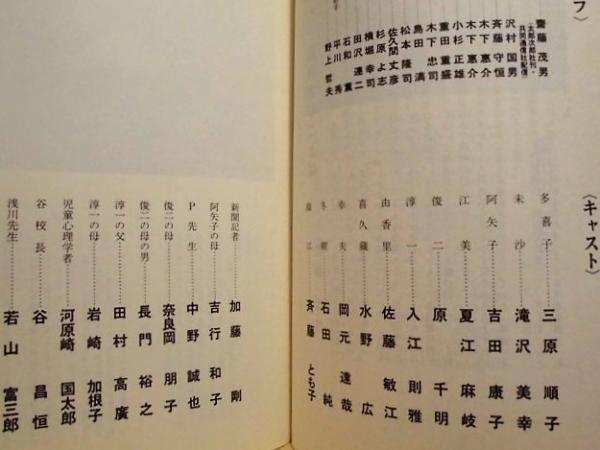 フ〉
齋藤茂男
（太郎次郎社刊・
共同通信社配信）
沢村国男
斉藤守恒
木下惠介
木下惠介
小杉正雄
重田重盛
木下忠司
島田満
松本隆司
佐久間丈彦
杉原よ志
横堀幸司
田沢連二
石和薫
平川秀
野上哲夫
〈キャスト〉
多喜子……三原順子
未沙……滝沢美幸
阿矢子……吉田康子
江美……夏江麻岐
俊二……原千明
淳一……入江則雅
由香里……佐藤敏江
喜久蔵……水野広
幸夫……岡元達哉
石田純
斉藤とも子
新聞記者……加藤剛
阿矢子の母……吉行和子
P先生……中野誠也
俊二の母……奈良岡朋子
俊二の母の男……長門裕之
淳一の父……田村高廣
淳一の母……岩崎加根子
児童心理学者……河原崎国太郎
谷校長……谷昌恒
浅川先生……若山富三郎